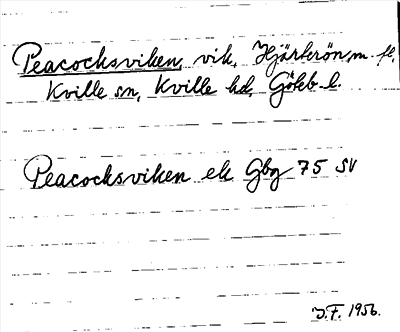 Peacocksviken, vik, Hjärterön, m. fl,
Kville sn, Kville hd, Göteb. l.
Peacocksviken ek Gbg 75 SV
J.F. 1956.